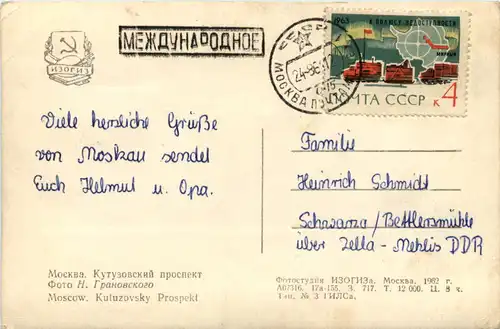 МЕЖДУНАРОДНОЕ
ИЗОГИЗ
1963
МОСКВА
ПОЧТА СССР к 4
Viele herzliche Grüße
von Moskau sendet
Euch Helmut u. Opa.
Familie
Heinrich Schmidt
Schwarza/Bettlersmühle
über Zella-Mehlis DDR
Москва. Кутузовский проспект
Фото Н. Грановского
Moscow. Kutuzovsky Prospekt
Фотостудия ИЗОГИЗа. Москва. 1962 г.
А07316. 17а-155. З. 717. Т. 12 000. Ц. 8 к.
Тип. № 3 ГИЛСа.